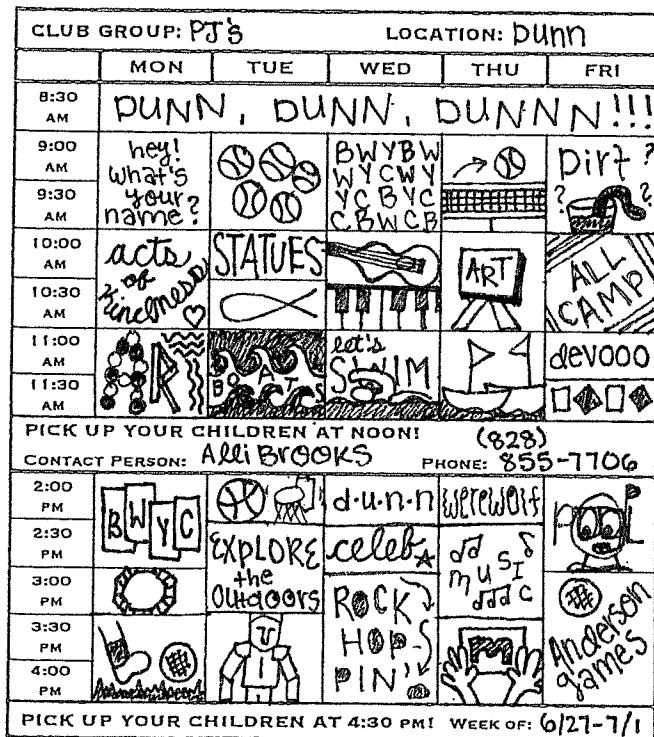 CLUB GROUP: PJ's LOCATION: DUNN
MON TUE WED THU FRI
8:30 AM DUNN, DUNN, DUNNN!!!
9:00 AM
9:30 AM
hey! what's your name?
BWYBW
WYCWY
YCBYC
CBWCB
Dirt ? ? ?
10:00 AM
10:30 AM
acts of Kindness
STATUES
ART
ALL CAMP
11:00 AM
11:30 AM
BOATS
let's SWIM
devooo
PICK UP YOUR CHILDREN AT NOON! (828)
CONTACT PERSON: Alli BROOKS PHONE: 855-7706
2:00 PM
2:30 PM
3:00 PM
3:30 PM
4:00 PM
BWYC
EXPLORE the OUtdOORS
d·u·n·n
celeb
ROCK HOP-PIN'
werewolf
music
POOL
Anderson games
PICK UP YOUR CHILDREN AT 4:30 PM! WEEK OF: 6/27-7/1